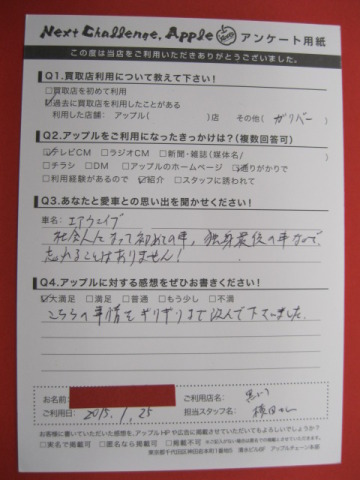 Next Challenge, Apple アンケート用紙
この度は当店をご利用いただきありがとうございました。
Q1.買取店利用について教えて下さい！
□買取店を初めて利用
☑過去に買取店を利用したことがある
利用した店舗： アップル( )店 その他( ガリバー )
Q2.アップルをご利用になったきっかけは？(複数回答可)
☑テレビCM □ラジオCM □新聞・雑誌(媒体名/ )
□チラシ □DM □アップルのホームページ ☑通りがかりで
□利用経験があるので ☑紹介 □スタッフに誘われて
Q3.あなたと愛車との思い出を聞かせください！
車名： エアウェイブ
社会人になって初めての車，独身最後の車なので
忘れることはありません！
Q4.アップルに対する感想をぜひお書きください！
☑大満足 □満足 □普通 □もう少し □不満
こちらの事情をギリギリまで汲んで下さいました。
お名前: ご利用店名:
ご利用日: 2015. 1. 25 担当スタッフ名: 横田さん
お客様に書いていただいた感想を、アップルHPや広告に掲載させていただいてもよろしいでしょうか？
□実名で掲載可 □匿名なら掲載可 □掲載不可
東京都千代田区神田岩本町1番地5 清水ビル8F アップルチェーン本部